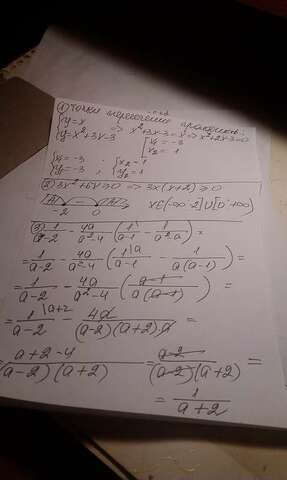 1) Точки пересечения графиков:
{y=x
{y=x²+3x-3 => x²+3x-3=x => x²+2x-3=0
[x₁=-3
[x₂=1
{x₁=-3 , {x₂=1
{y₁=-3 {y₂=1
2) 3x²+6x≥0 => 3x(x+2)≥0
-2 0 x∈(-∞ -2]∪[0 +∞)
3) 1/(a-2) - 4a/(a²-4) (1/(a-1) - 1/(a²-a)) =
= 1/(a-2) - 4a/(a²-4) (1\a/(a-1) - 1/(a(a-1))) =
= 1/(a-2) - 4a/(a²-4) ((a-1)/(a(a-1))) =
= 1\a+2/(a-2) - 4a/((a-2)(a+2)a) =
= (a+2-4)/((a-2)(a+2)) = (a-2)/((a-2)(a+2)) =
= 1/(a+2)